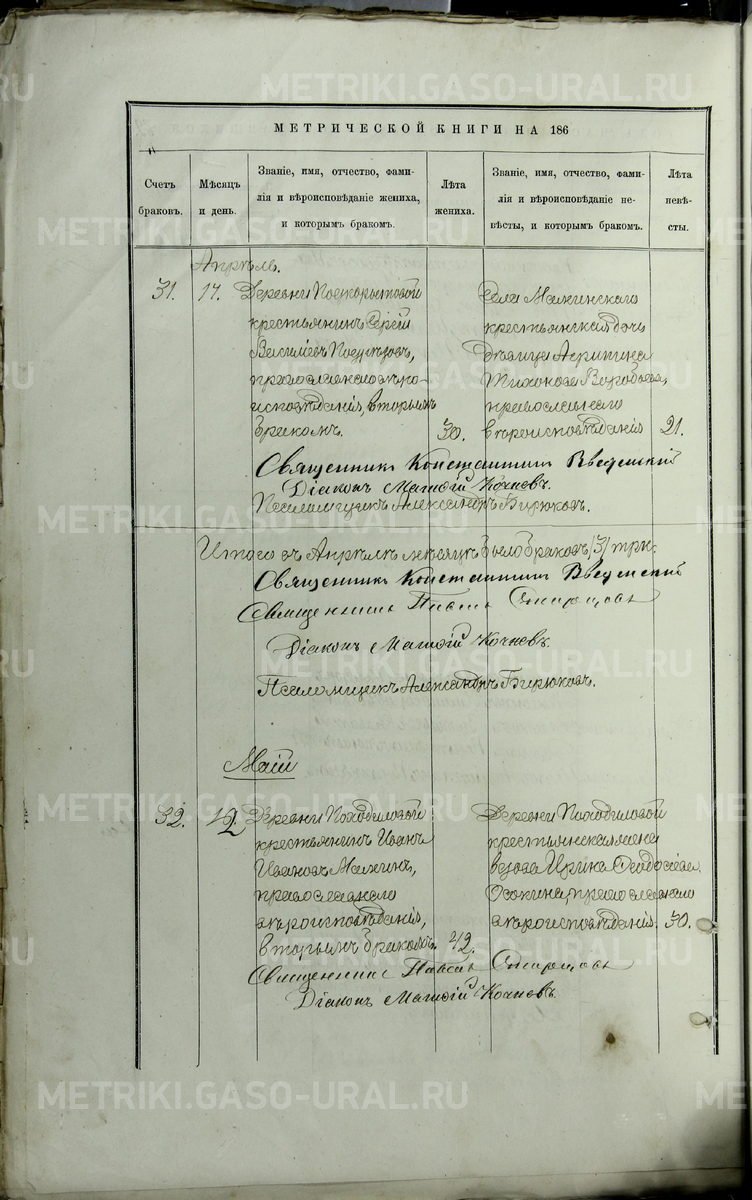 МЕТРИЧЕСКОЙ КНИГИ НА 186
Счетъ
браковъ.
Мѣсяцъ
и день.
Званіе, имя, отчество, фами-
лія и вѣроисповѣданіе жениха,
и которымъ бракомъ.
Лѣта
жениха.
Званіе, имя, отчество, фами-
лія и вѣроисповѣданіе не-
вѣсты, и которымъ бракомъ.
Лѣта
невѣ-
сты.
Апрѣль.
31.
17.
Деревни
крестьянинъ Сергій
Васильевъ
православнаго вѣро-
исповѣданія, вторымъ
бракомъ.
30.
Села Малкинскаго
крестьянская дочь
дѣвица Агрипина
Тихонова Воробьева,
православнаго
вѣроисповѣданія
21.
Священникъ Константинъ Введенскій
Діаконъ Матѳій Кочневъ.
Псаломщикъ Александръ Бирюковъ.
Итого въ Апрѣлѣ мѣсяцѣ было браковъ /3/ три.
Священникъ Константинъ Введенскій
Священникъ Павелъ Старцовъ
Діаконъ Матѳій Кочневъ.
Псаломщикъ Александръ Бирюковъ.
Маій
32.
12
Деревни Походиловой
крестьянинъ Иванъ
Ивановъ Малкинъ,
православнаго
вѣроисповѣданія,
вторымъ бракомъ.
42.
Деревни Походиловой
крестьянская жена
вдова Ирина Ѳеодосіева
Осокина, православнаго
вѣроисповѣданія.
30.
Священникъ Павелъ Старцовъ
Діаконъ Матѳій Кочневъ.
METRIKI.GASO-URAL.RU